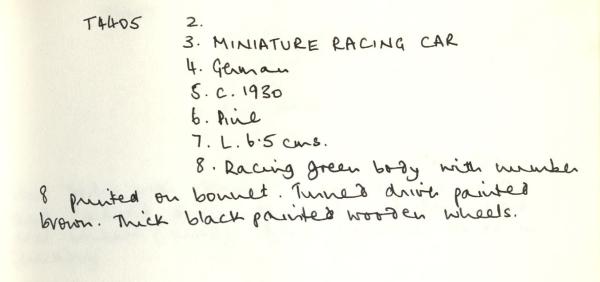 T4405 2.
3. MINIATURE RACING CAR
4. German
5. C. 1930
6. Pine
7. L. 6.5 cms.
8. Racing green body with number
8 printed on bonnet. Turned driver painted
brown. Thick black painted wooden wheels.